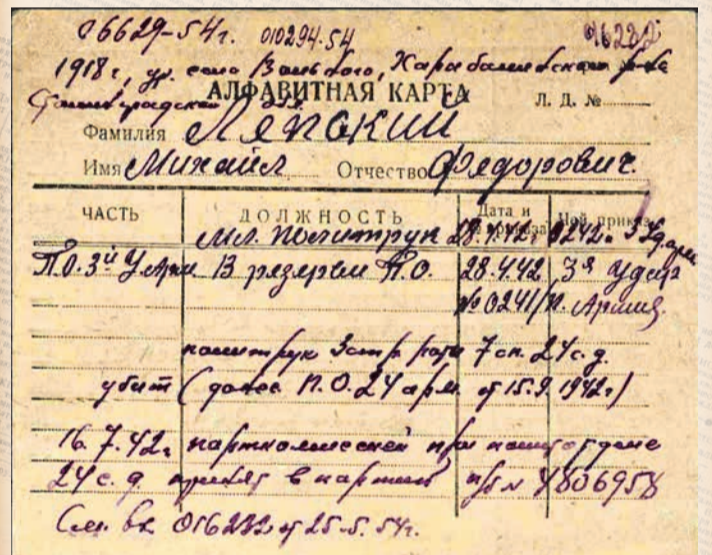 06629-54г. 010294.54 016232
1918г, ур. село Вольного, Харабалинского р-на
Сталинградской обл.
АЛФАВИТНАЯ КАРТА Л. Д. №
Фамилия Ляпский
Имя Михаил Отчество Федорович.
ЧАСТЬ ДОЛЖНОСТЬ Дата и № приказа Чей приказ
мл. политрук 28.4.42г 0242. 3 Уд. арм
П.О. 3й У. Арм В резерве П.О. 28.4.42 3я Удар
№ 0241/п. Армия.
политрук 3 стр. роты 7 сп. 24 с.д.
убит (донес П.О. 24 арм. от 15.9.1942г)
16.7.42г парткомиссией при политотделе
24 с.д. принят в партию п/б № 4806954
См. вх 016232 от 25.5.54г.